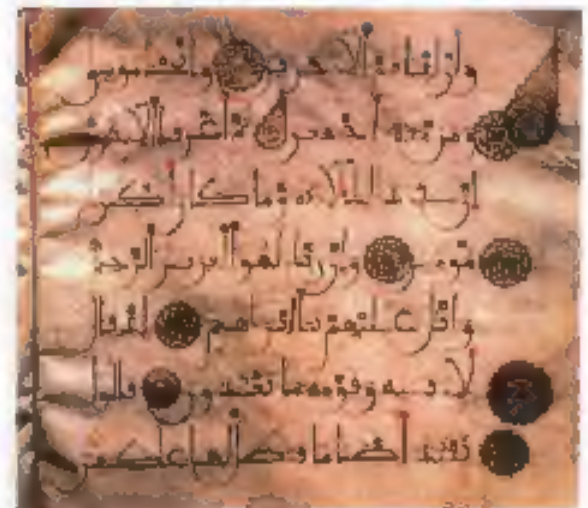 وازلفنا ثم الاخرين وانجينا موسى
ومن معه اجمعين ثم اغرقنا الاخرين
ان في ذلك لاية وما كان اكثرهم
مومنين وان ربك لهو العزيز الرحيم
واتل عليهم نبا ابرهيم اذ قال
لابيه وقومه ما تعبدون قالوا
نعبد اصناما فنظل لها عكفين